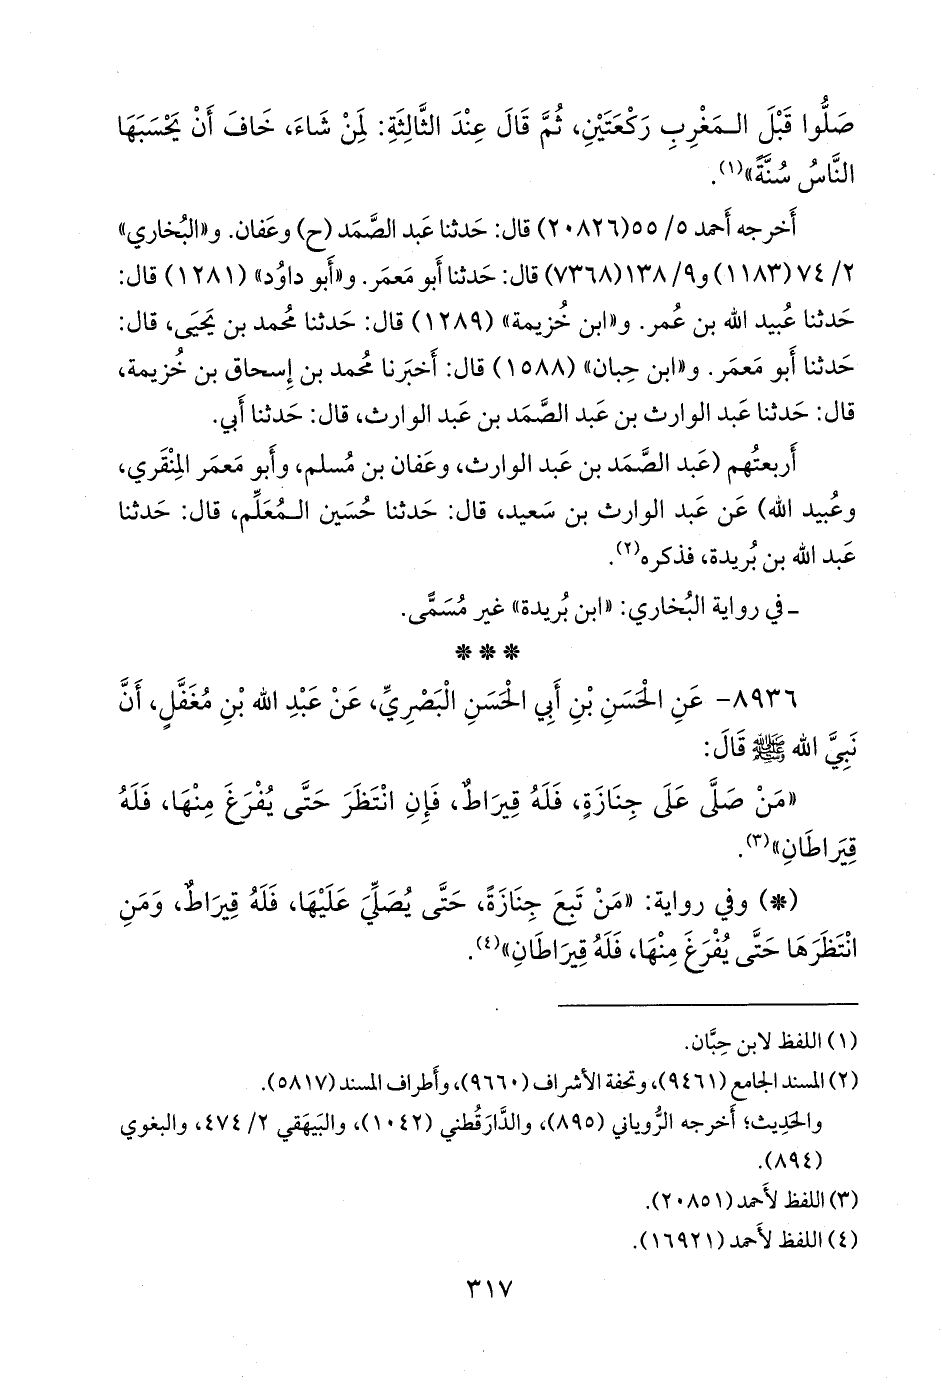 صَلُّوا قَبْلَ الـمَغْرِبِ رَكْعَتَيْنِ، ثُمَّ قَالَ عِنْدَ الثَّالِثَةِ: لِمَنْ شَاءَ، خَافَ أَنْ يَحْسَبَهَا
النَّاسُ سُنَّةً»(١).
أَخرجه أَحمد ٥/ ٥٥(٢٠٨٢٦) قال: حَدثنا عَبد الصَّمَد (ح) وعَفان. و«البُخاري»
٢/ ٧٤ (١١٨٣) و٩/ ١٣٨(٧٣٦٨) قال: حَدثنا أَبو مَعمَر. و«أَبو داوُد» (١٢٨١) قال:
حَدثنا عُبيد الله بن عُمر. و«ابن خُزيمة» (١٢٨٩) قال: حَدثنا مُحمد بن يَحيَى، قال:
حَدثنا أَبو مَعمَر. و«ابن حِبان» (١٥٨٨) قال: أَخبَرنا مُحمد بن إِسحاق بن خُزيمة،
قال: حَدثنا عَبد الوارث بن عَبد الصَّمَد بن عَبد الوارث، قال: حَدثنا أَبي.
أَربعتُهم (عَبد الصَّمَد بن عَبد الوارث، وعَفان بن مُسلم، وأَبو مَعمَر المِنْقَري،
وعُبيد الله) عَن عَبد الوارث بن سَعيد، قال: حَدثنا حُسَين الـمُعَلِّم، قال: حَدثنا
عَبد الله بن بُريدة، فذكره(٢).
ـ في رواية البُخاري: «ابن بُريدة» غير مُسَمًّى.
* * *
٨٩٣٦- عَنِ الْحَسَنِ بْنِ أَبِي الْحَسَنِ الْبَصْرِيِّ، عَنْ عَبْدِ الله بْنِ مُغَفَّلٍ، أَنَّ
نَبِيَّ الله ﷺ قَالَ:
«مَنْ صَلَّى عَلَى جِنَازَةٍ، فَلَهُ قِيرَاطٌ، فَإِنِ انْتَظَرَ حَتَّى يُفْرَغَ مِنْهَا، فَلَهُ
قِيرَاطَانِ»(٣).
(*) وفي رواية: «مَنْ تَبِعَ جِنَازَةً، حَتَّى يُصَلِّيَ عَلَيْهَا، فَلَهُ قِيرَاطٌ، وَمَنِ
انْتَظَرَهَا حَتَّى يُفْرَغَ مِنْهَا، فَلَهُ قِيرَاطَانِ»(٤).
(١) اللفظ لابن حِبَّان.
(٢) المسند الجامع (٩٤٦١)، وتحفة الأشراف (٩٦٦٠)، وأَطراف المسند (٥٨١٧).
والحَدِيث؛ أَخرجه الرُّوياني (٨٩٥)، والدَّارَقُطني (١٠٤٢)، والبَيهَقي ٢/ ٤٧٤، والبغوي
(٨٩٤).
(٣) اللفظ لأَحمد (٢٠٨٥١).
(٤) اللفظ لأَحمد (١٦٩٢١).
٣١٧